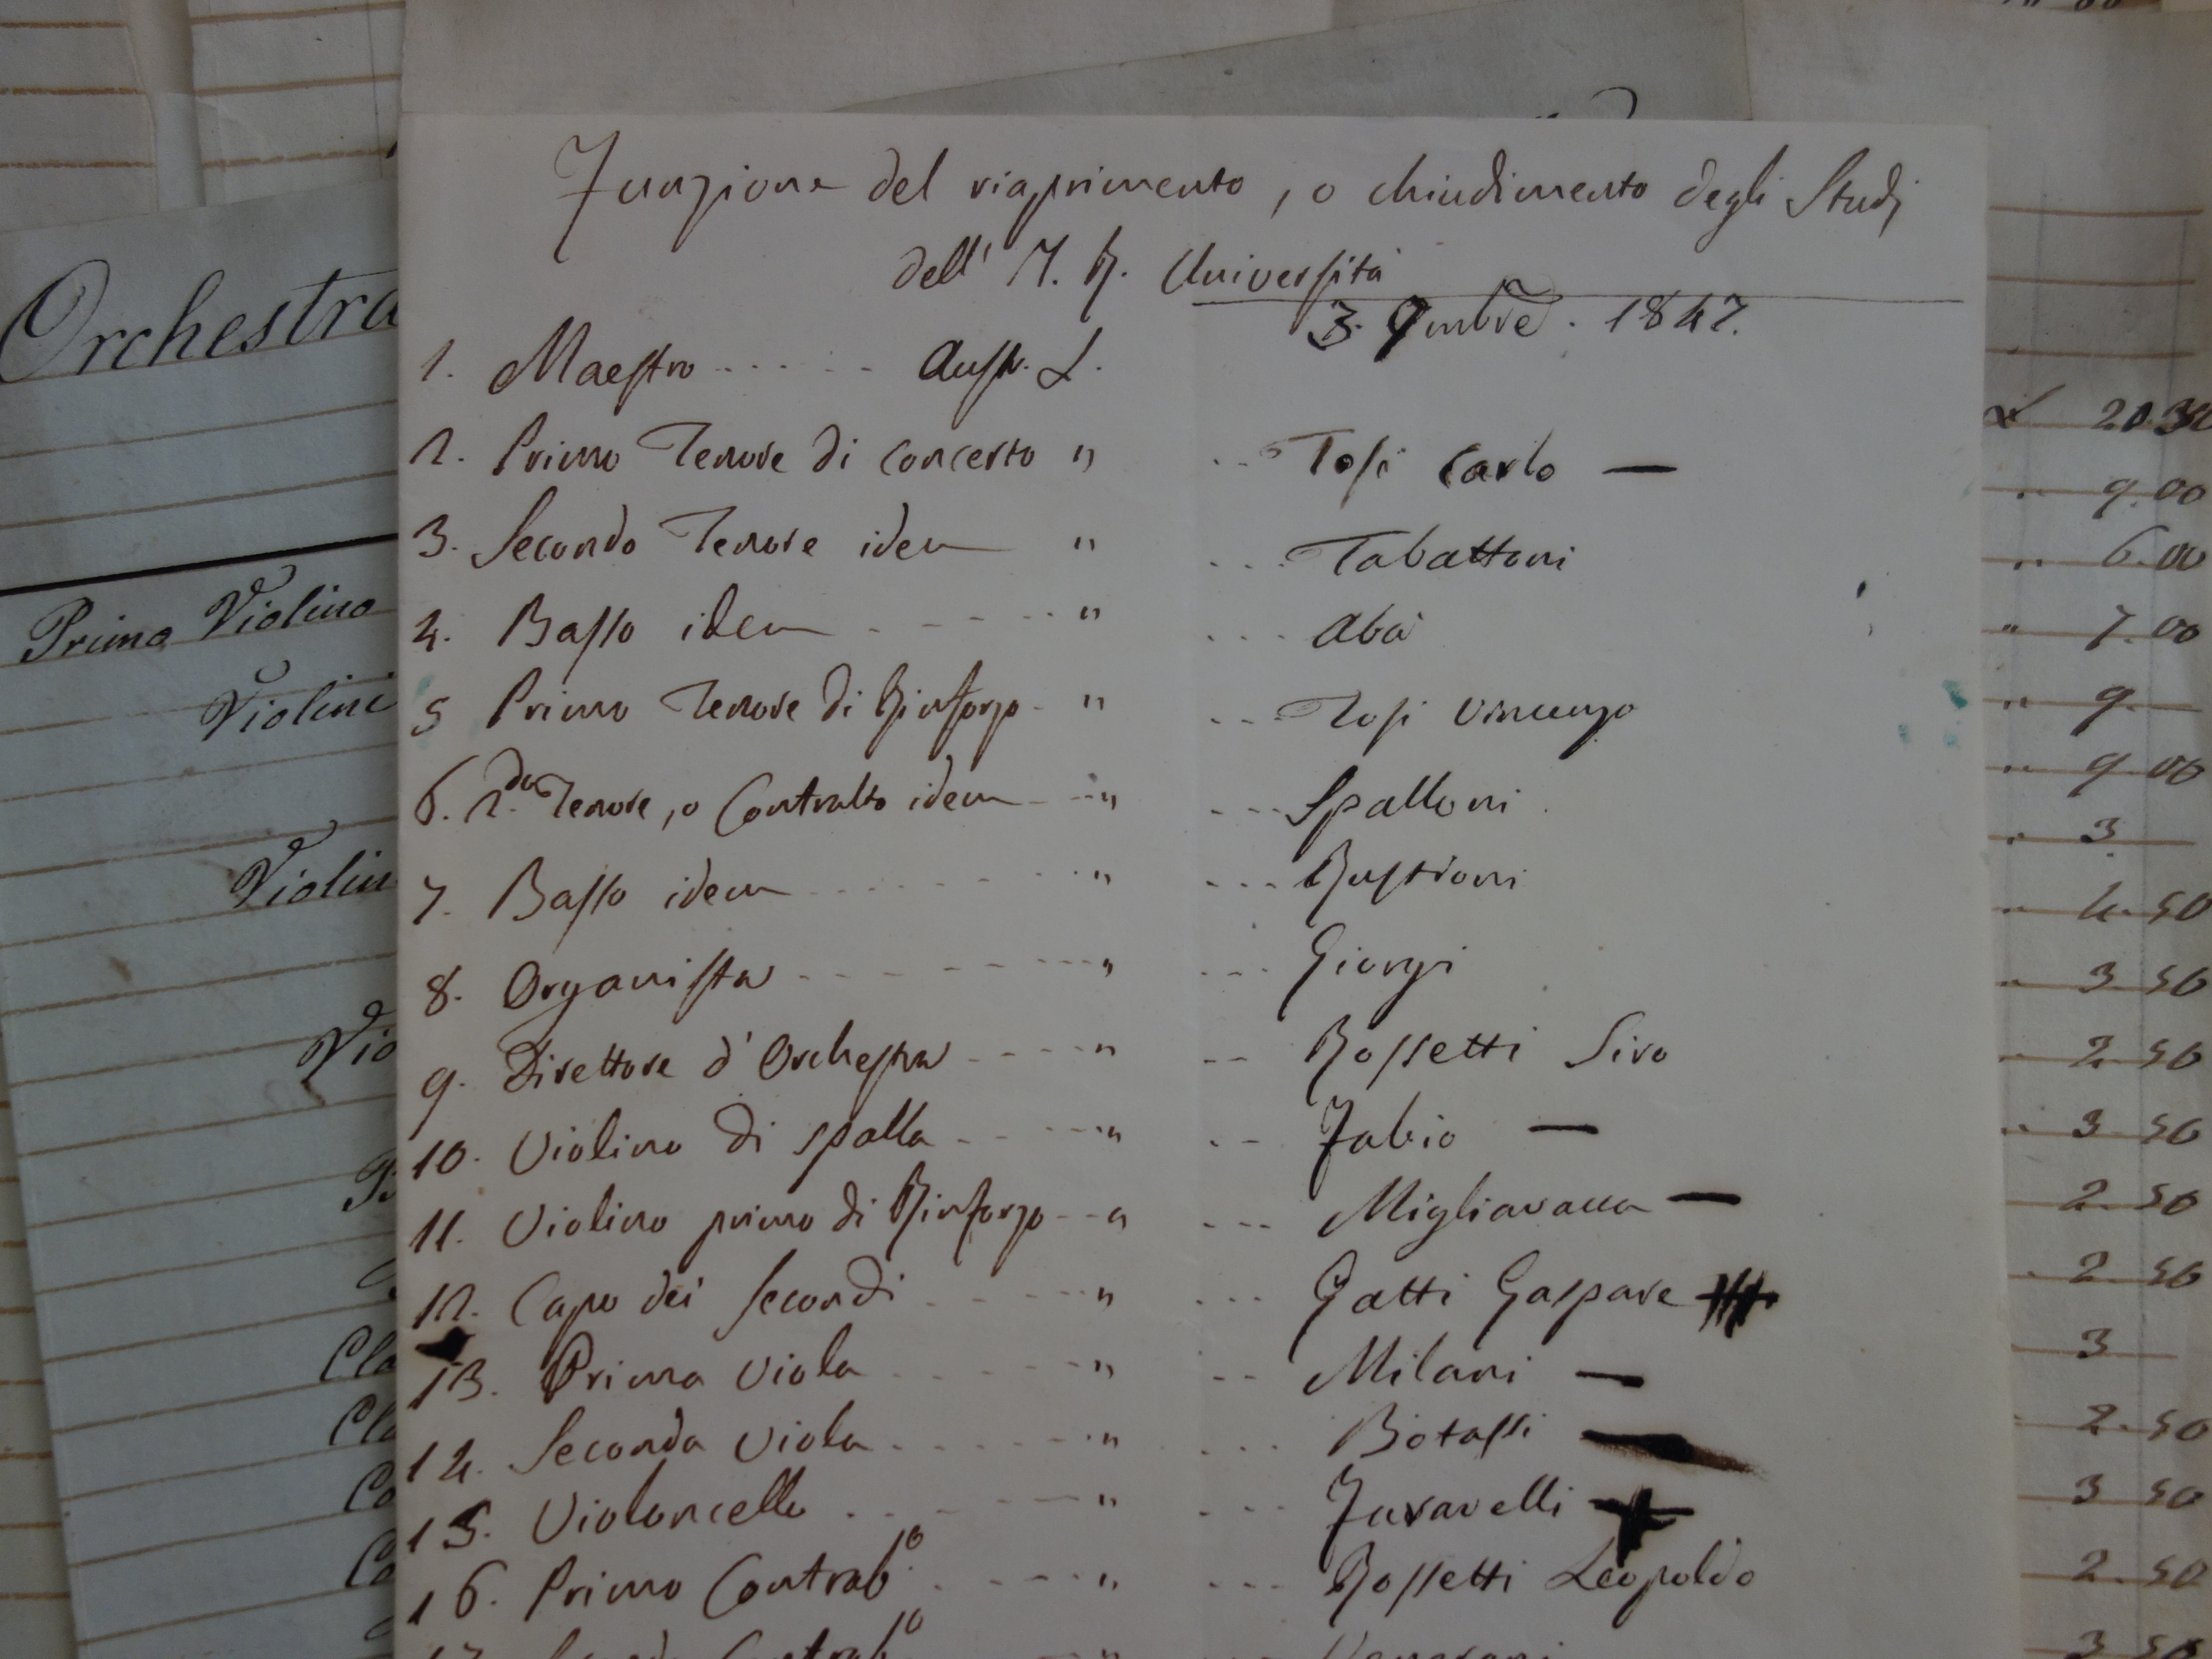 Funzione del riaprimento, o chiudimento degli Studj
dell' I. R. Università
3. 9mbre. 1847.
1. Maestro ...... Austr. L.
2. Primo Tenore di concerto " ... Tosi Carlo —
3. Secondo Tenore idem " ... Tabattoni
4. Basso idem ..... " ... Abà
5 Primo Tenore di Rinforzo - " ... Tosi Vincenzo
6. 2.do Tenore, o Contralto idem - " ... Spalloni.
7. Basso idem ..... " ... Rustioni
8. Organista ..... " ... Giorgi
9. Direttore d'Orchestra .... " .. Rossetti Siro
10. Violino di spalla .... " .. Fabio —
11. Violino primo di Rinforzo - " ... Migliavacca —
12. Capo dei Secondi .... " ... Gatti Gaspare
13. Prima Viola .... " .. Milani —
14. Seconda Viola .... " ... Botassi —
15. Violoncello ..... " ... Favarelli
16. Primo Contrab.o .... " ... Rossetti Leopoldo
Orchestra
Primo Violino
Violini
Violin
Vio
Cla
Cla
Co
Co
9.00
6.00
" 7.00
" 9.—
" 9.00
" 3
" 4.50
" 3.50
" 2.50
" 3.50
" 2.50
" 2.50
3
2.50
3 50
2.50
3 50